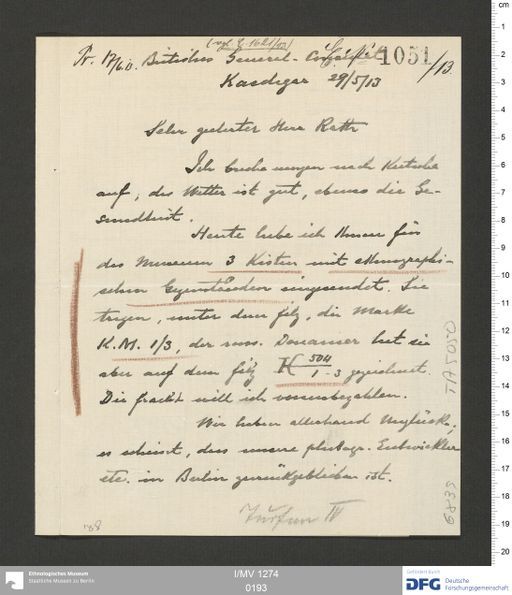 (vgl. E. 1621/13)
Pr. 17/6 13. Britisches General-Consulat 1051/13.
Kaschgar 29/5/13
Sehr geehrter Herr Rath
Ich breche morgen nach Kutscha
auf, das Wetter ist gut, ebenso die Ge-
sundheit.
Heute habe ich Ihnen für
das Museum 3 Kisten mit ethnographi-
schen Gegenständen eingesendet. Sie
tragen, unter dem filz, die Marke
K.M. 1/3, der russ. hat sie
aber auf dem filz K 504/1-3 gezeichnet.
Die fracht will ich vorausbezahlen.
Wir haben allerhand Unglück,
es scheint, dass unsere photogr. Entwickler
etc. in Berlin zurückgeblieben ist.
IV
188
TIA 5050
Ethnologisches Museum
Staatliche Museen zu Berlin
I/MV 1274
0193
Gefördert durch
DFG Deutsche
Forschungsgemeinschaft
cm
1
2
3
4
5
6
7
8
9
10
11
12
13
14
15
16
17
18
19
20